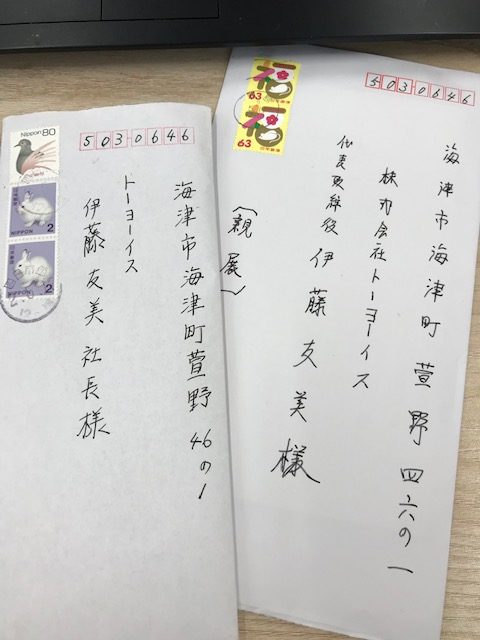 Nippon 80
日本郵便
NIPPON 2
NIPPON 2
5030646
海津市海津町萱野46の1
トーヨーイス
伊藤友美社長様
福
63
日本郵便
福
63
日本郵便
5030646
海津市海津町萱野四六の一
株式会社トーヨーイス
代表取締役 伊藤友美様
(親展)